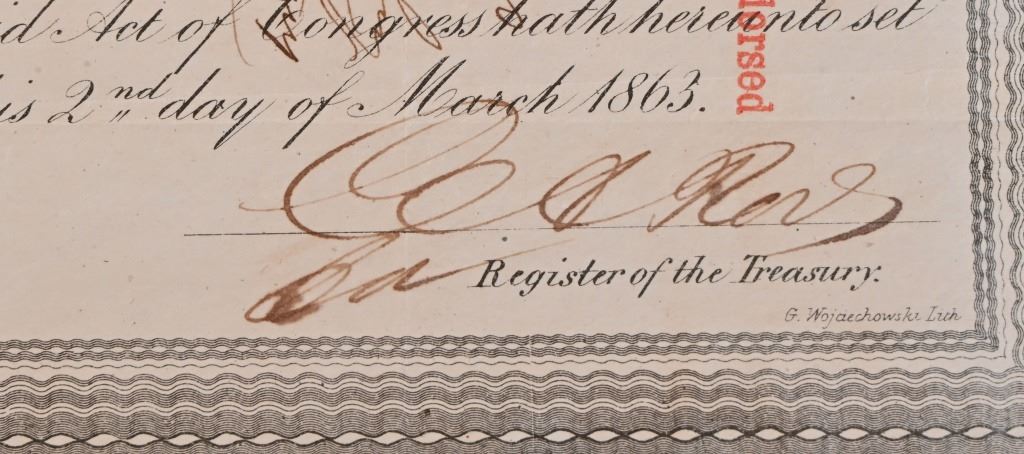 id Act of Congress hath hereunto set
is 2nd day of March 1863.
dorsed
Register of the Treasury.
G. Wojciechowski Lith